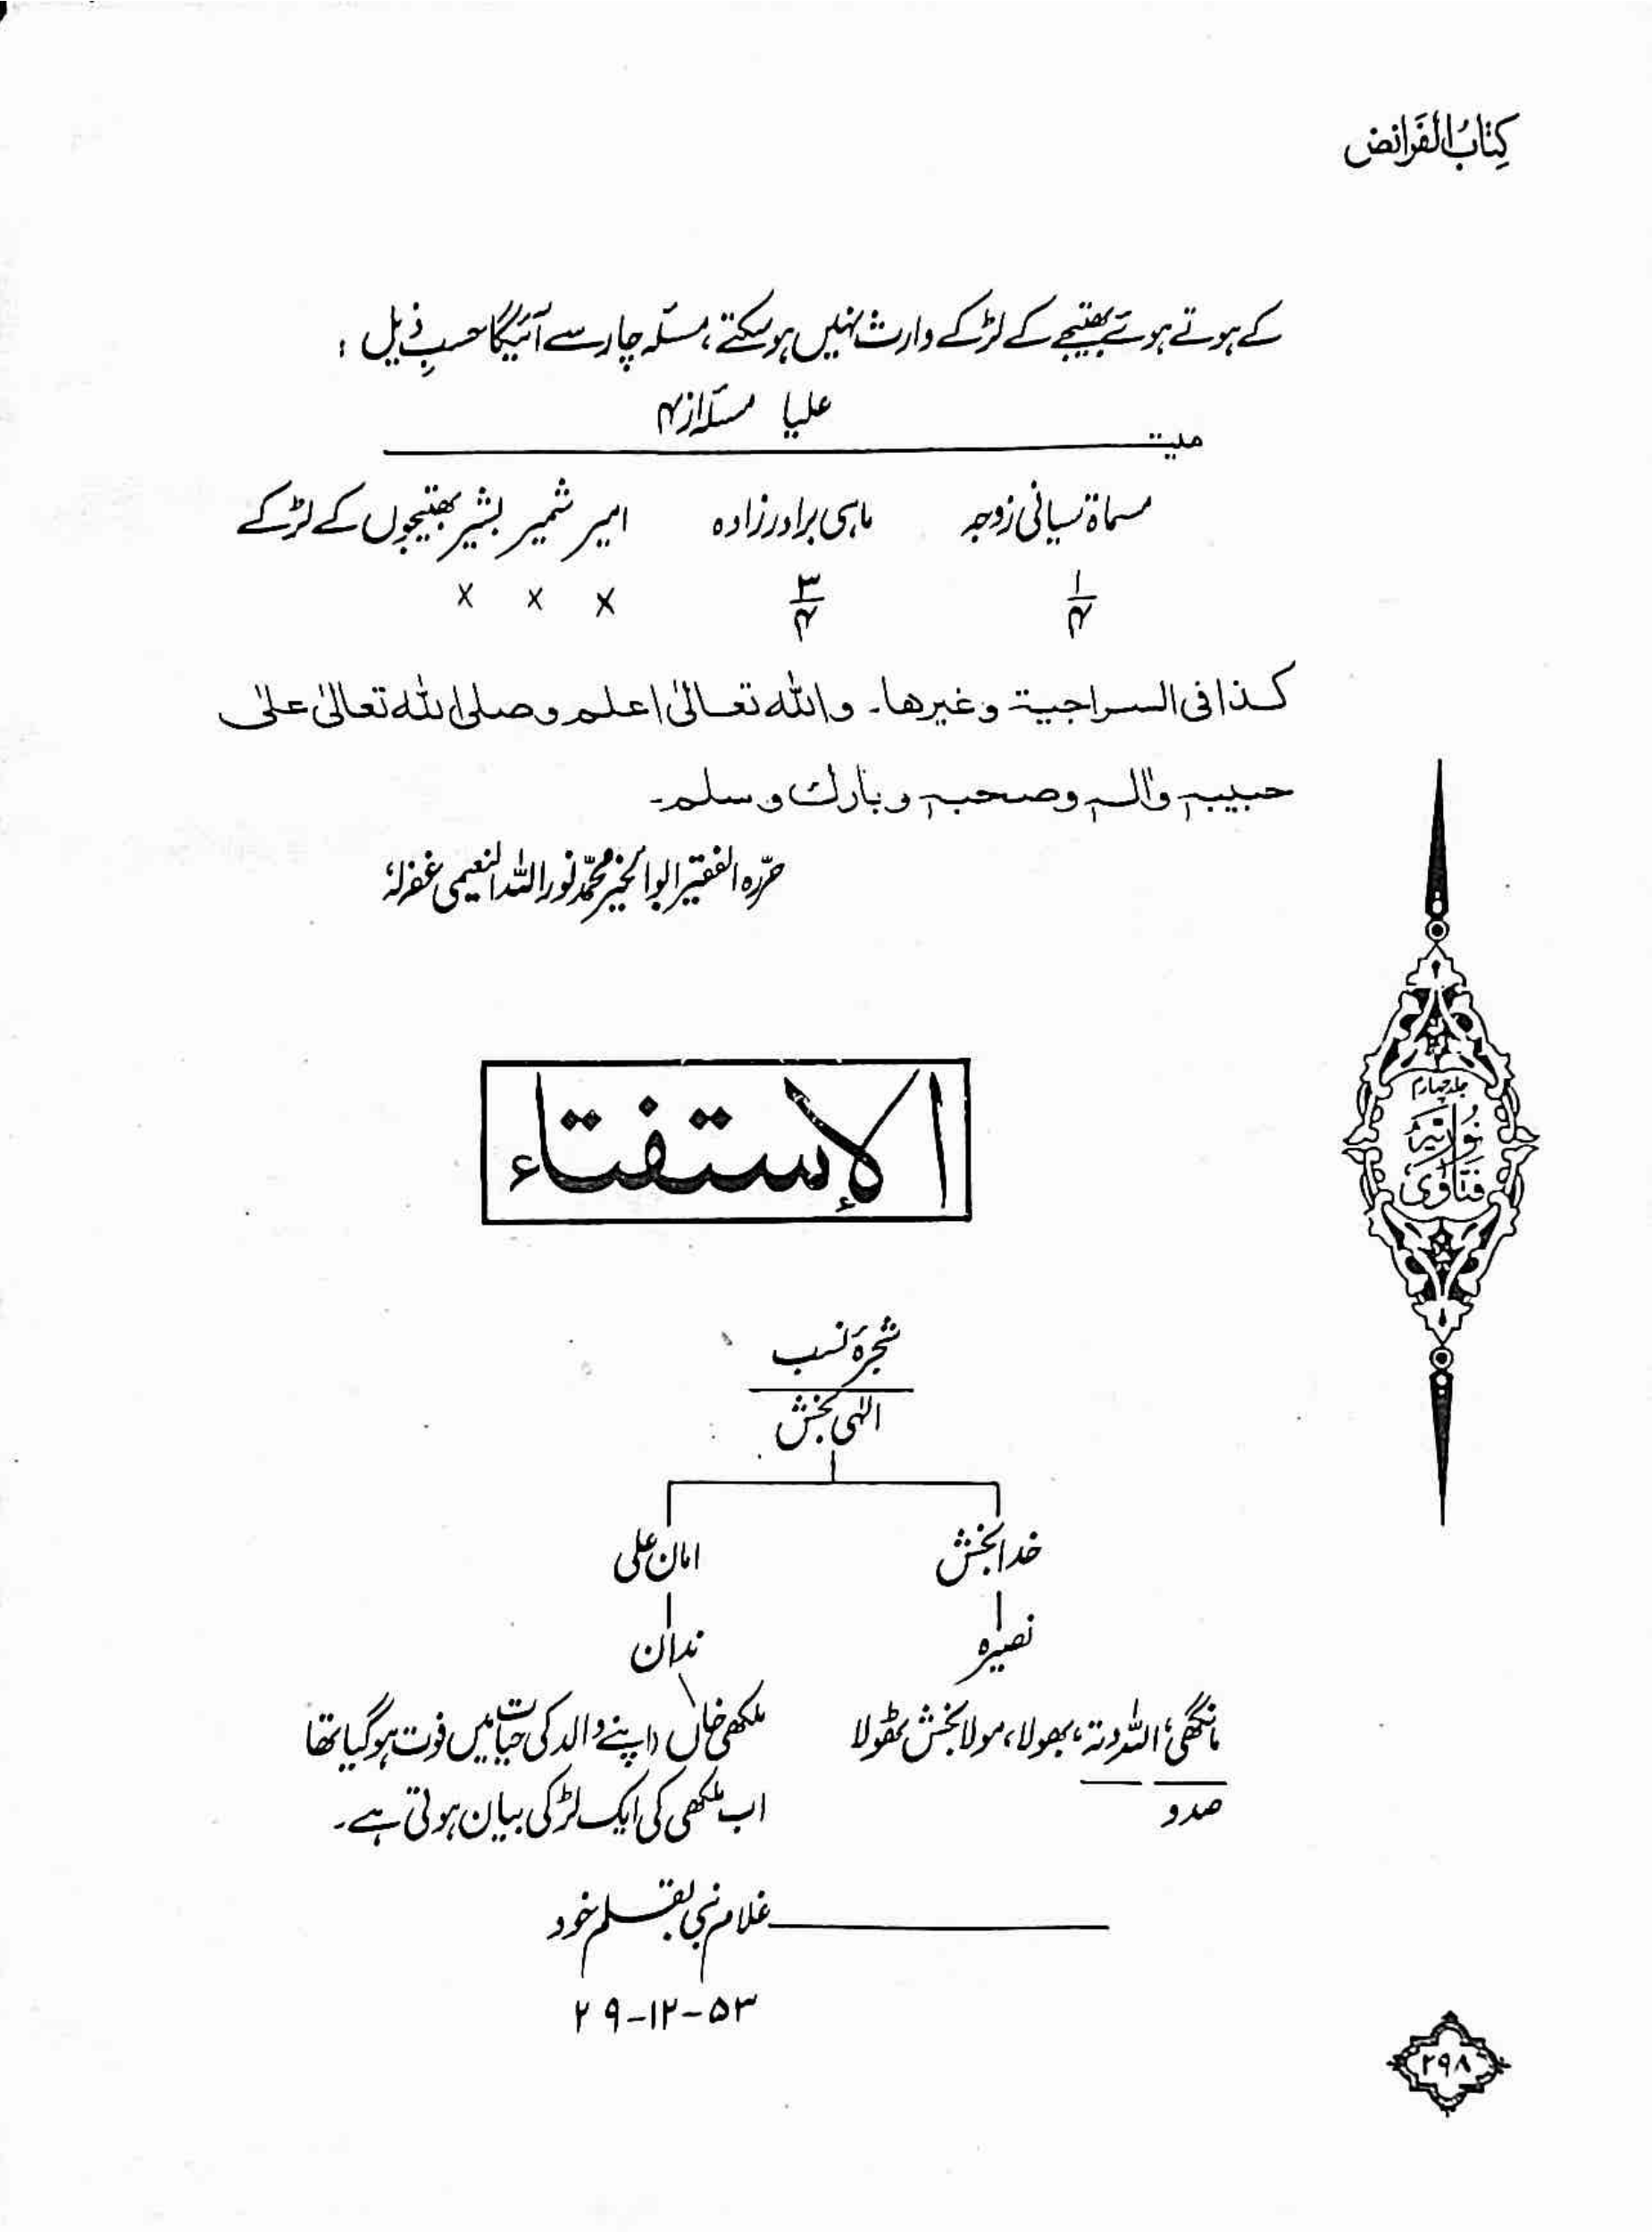 کِتَابُ الفَرائض
کے ہوتے ہوئے بھتیجے کے لڑکے وارث نہیں ہو سکتے، مسئلہ چار سے آئیگا حسبِ ذیل :
علیا مسئلہ از ۴
میت
مسماۃ نسیانی زوجہ ماہی برادرزادہ امیر شمیر بشیر بھتیجوں کے لڑکے
۱/۴ ۳/۴ × × ×
کذا فی السراجیۃ وغیرھا۔ واللہ تعالیٰ اعلم وصلی اللہ تعالیٰ علیٰ
حبیبہ واٰلہ وصحبہ وبارک وسلم۔
حرّرہ الفقیر ابوالخیر محمد نور اللہ النعیمی غفرلہٗ
الإستفتاء
جلد چہارم
فتاوٰی نوریہ
شجرۂ نسب
الٰہی بخش
خدا بخش امان علی
نصیرہ ندان
مانگھی، اللہ دتہ، بھولا، مولا بخش ٹھولا ملکھی خاں (اپنے والد کی حیات میں فوت ہو گیا تھا
صدو اب ملکھی کی ایک لڑکی بیان ہوتی ہے۔
غلام نبی بقلم خود
۲۹-۱۲-۵۳
۲۹۸